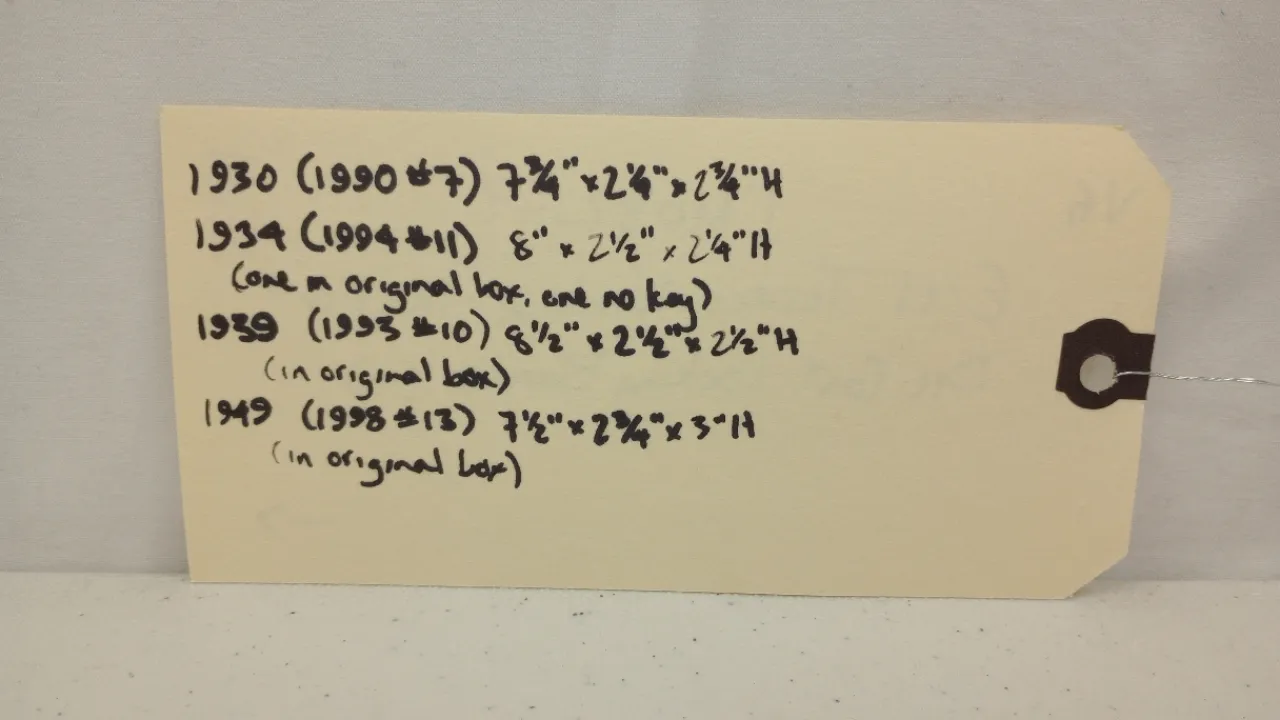 1930 (1990 #7) 7¾" x 2¼" x 2¾" H
1934 (1994 #11) 8" x 2½" x 2¼" H
(one in original box, one no key)
1939 (1993 #10) 8½" x 2½" x 2½" H
(in original box)
1949 (1998 #13) 7½" x 2¾" x 3" H
(in original box)